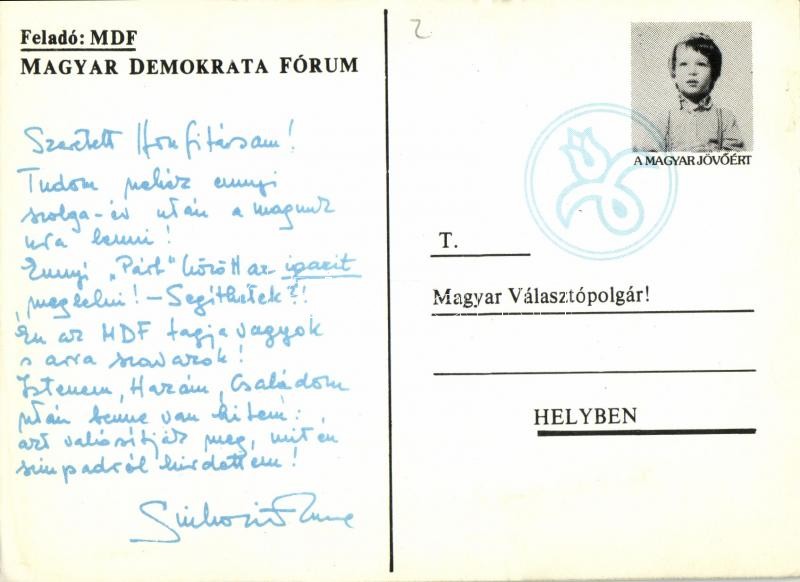 Feladó: MDF
MAGYAR DEMOKRATA FÓRUM
Szeretett Honfitársam!
Tudom nehéz ennyi
szolga-év után a magunk
ura lenni!
Ennyi „Párt" között az igazit
meglelni! - Segíthetek?!
Én az MDF tagja vagyok
s arra szavazok!
Istenem, Hazám, Családom
után benne van hitem:
azt valósítják meg, mit én
szinpadról hirdettem!
Sinkovits Imre
2
A MAGYAR JÖVŐÉRT
T.
Magyar Választópolgár!
HELYBEN